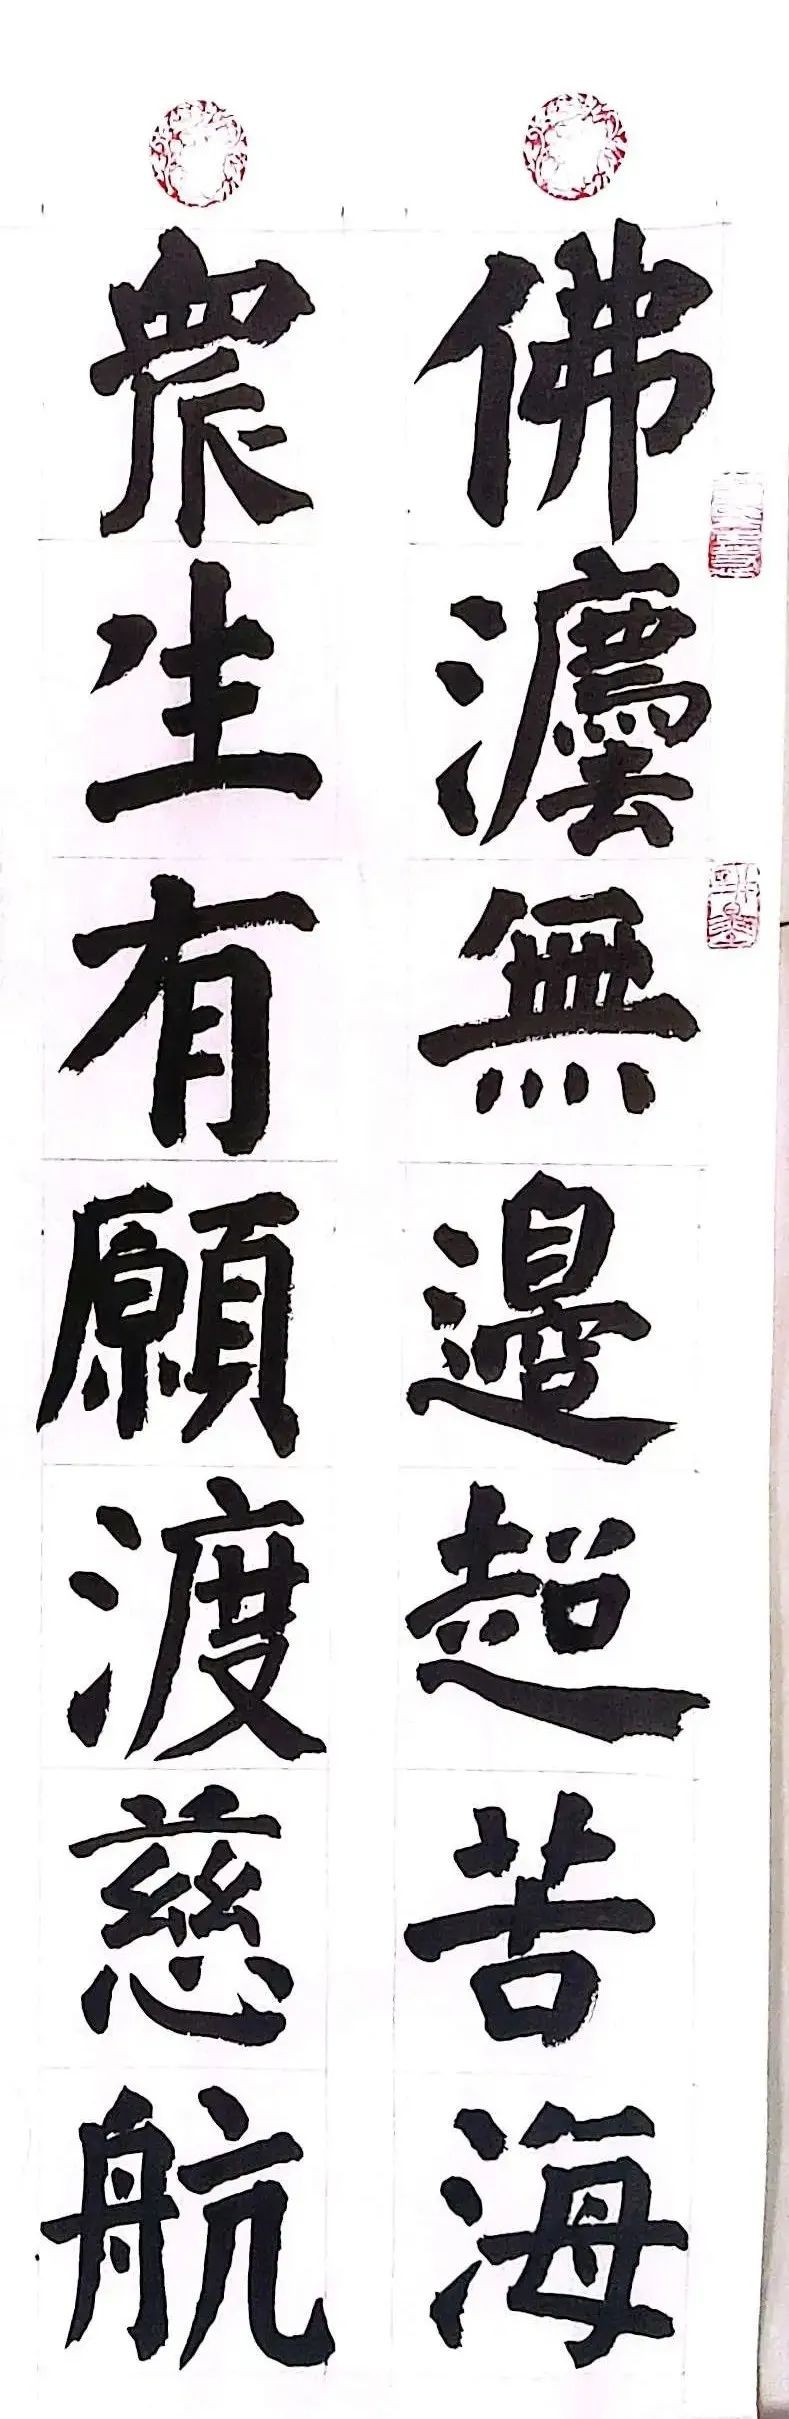 佛灋無邊超苦海
眾生有願渡慈航